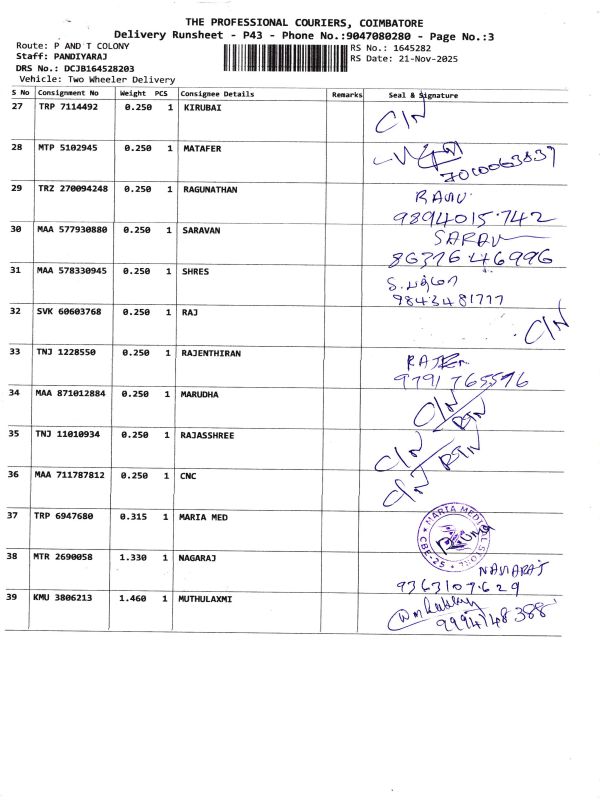 THE PROFESSIONAL COURIERS, COIMBATORE
Delivery Runsheet - P43 - Phone No.:9047080280 - Page No.:3
Route: P AND T COLONY
RS No.: 1645282
Staff: PANDIYARAJ
RS Date: 21-Nov-2025
DRS No.: DCJB164528203
Vehicle: Two Wheeler Delivery
S No Consignment No Weight PCS Consignee Details Remarks Seal & Signature
27 TRP 7114492 0.250 1 KIRUBAI C/N
28 MTP 5102945 0.250 1 MATAFER
7010063839
29 TRZ 270094248 0.250 1 RAGUNATHAN RAGU
9894015742
30 MAA 577930880 0.250 1 SARAVAN SARAV
8637646996
31 MAA 578330945 0.250 1 SHRES
9843481777
32 SVK 60603768 0.250 1 RAJ C/N
33 TNJ 1228550 0.250 1 RAJENTHIRAN
9791765576
34 MAA 871012884 0.250 1 MARUDHA C/N RTN
35 TNJ 11010934 0.250 1 RAJASSHREE C/N RTN
36 MAA 711787812 0.250 1 CNC C/N
37 TRP 6947680 0.315 1 MARIA MED MARIA MEDICAL STORE CBE-25
38 MTR 2690058 1.330 1 NAGARAJ NAGARAJ
9363107629
39 KMU 3806213 1.460 1 MUTHULAXMI
9994148388